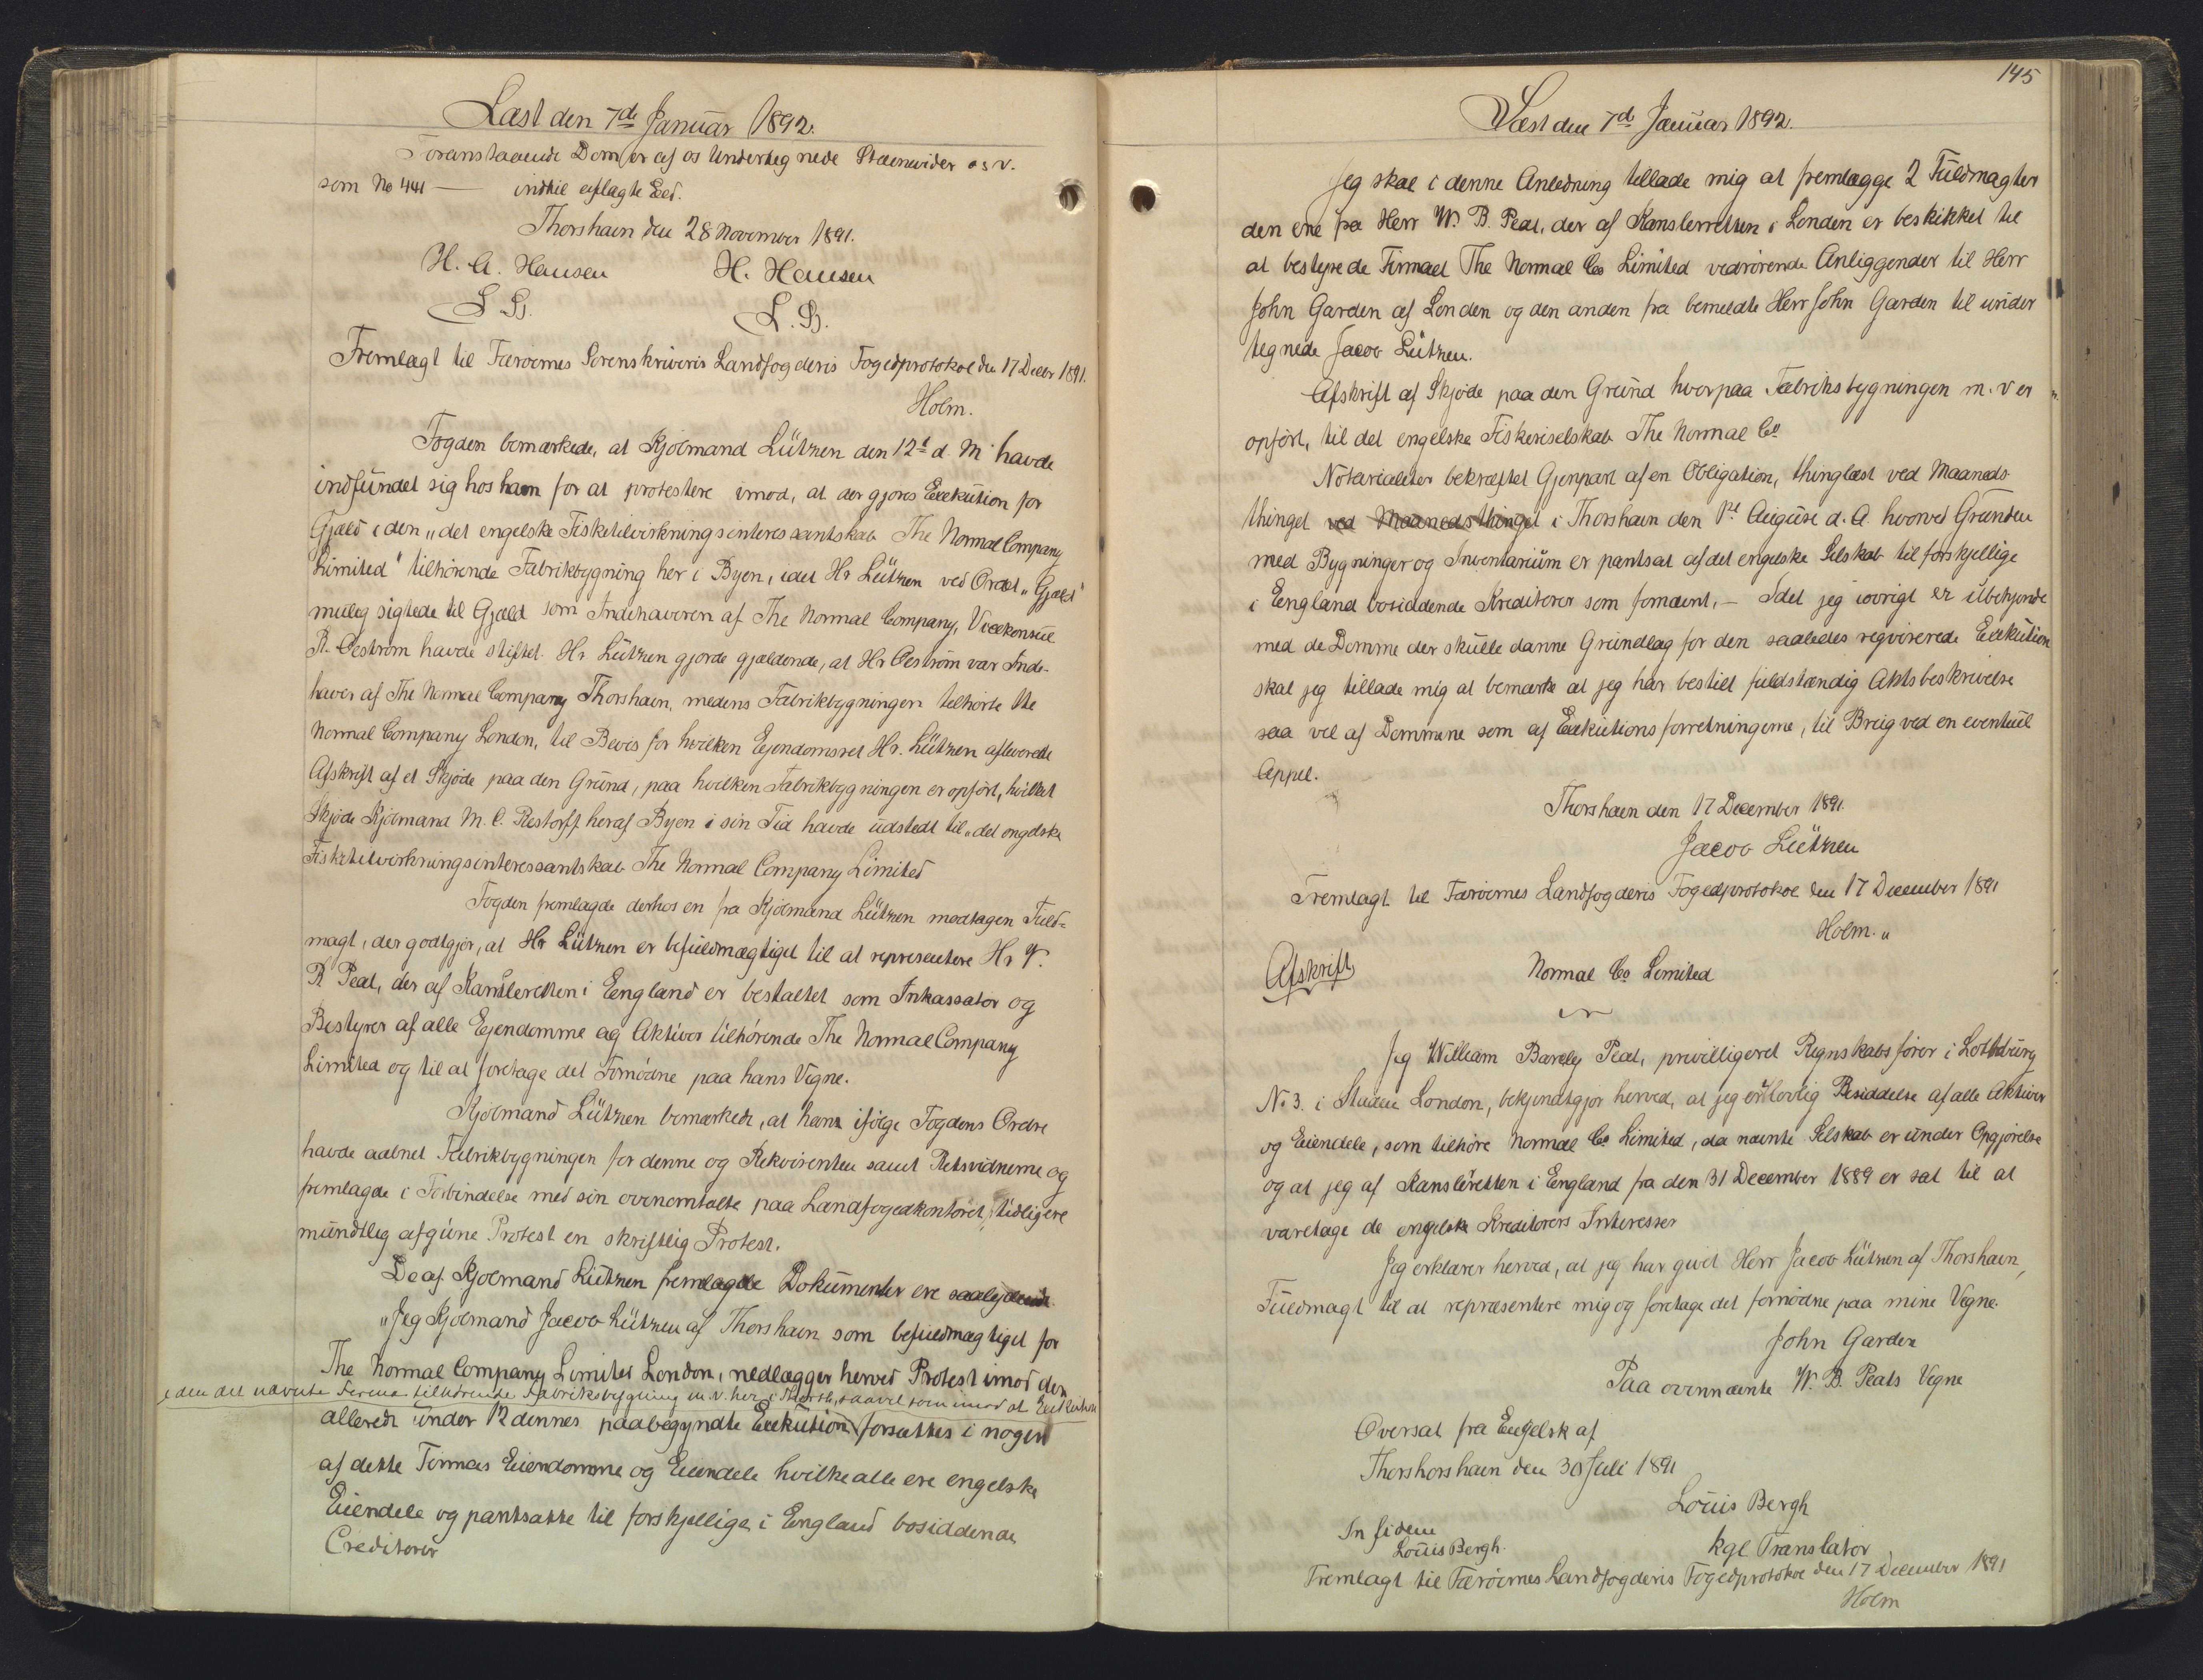 Læst den 7de Januar 1892.
Foranstaaende Dom er af os Undertegnede Stuevidner o s v.
som No 441 — indtil aflagte Eed.
Thorshavn den 28 November 1891.
H. A. Hansen H. Hansen
L. S. L. S.
Fremlagt til Færøernes Sorenskriveris Landfogderis Fogedprotokol den 17 Decbr 1891.
Holm.
Fogden bemærkede, at Kjøbmand Lützen den 12te d. M. havde
indfundet sig hos ham for at protestere imod, at der gjøres Exekution for
Gjæld i den „det engelske Fisketilvirkningsinteressantskab The Normal Company
Limited" tilhørende Fabrikbygning her i Byen, idet Hr Lützen ved Ordet „Gjæld"
muelig sigtede til Gjæld som Indehaveren af The Normal Company, Vicekonsul
R. Oestrøm havde stiftet. Hr Lützen gjorde gjældende, at Hr Oestrøm var Inde-
haver af The Normal Company Thorshavn, medens Fabrikbygningen tilhørte the
Normal Company London, til Bevis for hvilken Ejendomsret Hr. Lützen afleverede
Afskrift af et Skjøde paa den Grund, paa hvilken Fabrikbygningen er opført, hvilket
Skjøde Kjøbmand M. C. Restorff heraf Byen i sin Tid havde udstedt til „det engelske
Fisketilvirkningsinteressantskab The Normal Company Limited
Fogden fremlagde derhos en fra Kjøbmand Lützen modtagen Fuld-
magt, der godtgjør, at Hr Lützen er befuldmægtiget til at representere Hr W.
B Peat, der af Kanslerretten i England er bestaltet som Inkassator og
Bestyrer af alle Ejendomme og Aktiver tilhørende The Normal Company
Limited og til at foretage det Fornødne paa hans Vegne.
Kjøbmand Lützen bemærkede, at han ifølge Fogdens Ordre
havde aabnet Fabrikbygningen for denne og Rekvirenten samt Retsvidnerne og
fremlagde i Forbindelse med sin ovenomtalte paa Landfogedkontoret tidligere
mundtlig afgivne Protest en skriftlig Protest.
De af Kjøbmand Lützen fremlagde Dokumenter ere saalydende
„Jeg Kjøbmand Jacob Lützen af Thorshavn som befuldmægtiget for
The Normal Company Limited London, nedlægger herved Protest imod den
i den det nævnte Firma tilhørende Fabriksbygning m. v. her i Thorsh, saavel som imod at Exekution
allerede under 12 dennes paabegyndte Exekution forsættes i nogen
af dette Firmas Eiendomme og Eiendele hvilke alle ere engelske
Eiendele og pantsatte til forskjellige i England bosiddende
Creditorer
145
Læst den 7de Januar 1892.
Jeg skal i denne Anledning tillade mig at fremlægge 2 Fuldmagter
den ene fra Herr W. B. Peat, der af Kanslerretten i London er beskikket til
at bestyre de Firmaet The Normal Co Limited vedrørende Anliggender til Herr
John Garden af London og den anden fra bemeldte Herr John Garden til under
tegnede Jacob Lützen.
Afskrift af Skjøde paa den Grund hvorpaa Fabriksbygningen m. v er
opført, til det engelske Fiskeriselskab The Normal Co
Notarialiter bekræftet Gjenpart af en Obligation, thinglæst ved Maaneds
thinget ved Maanedsthinget i Thorshavn den 1ste August d. A. hvorved Grunden
med Bygninger og Inventarium er pantsat af det engelske Selskab til forskjellige
i England bosiddende Kreditorer som fornævnt. — Idet jeg iøvrigt er ubekjendt
med de Domme der skulle danne Grundlag for den saaledes reqvirerede Exekution
skal jeg tillade mig at bemærke at jeg har bestilt fuldstændig Aktsbeskrivelse
saa vel af Dommene som af Exekutionsforretningerne, til Brug ved en eventuel
Appel.
Thorshavn den 17 December 1891.
Jacob Lützen
Fremlagt til Færøernes Landfogderis Fogedprotokol den 17 December 1891
Holm. "
Afskrift
Normal Co. Limited
Jeg William Barcley Peat, priviligeret Regnskabsfører i Lothbury
No 3. i London, bekjendtgjør herved, at jeg er i lovlig Besiddelse af alle Aktiver
og Eiendele, som tilhøre Normal Co Limited, da nævnte Selskab er under Opgjørelse
og at jeg af Kanslerretten i England fra den 31 December 1889 er sat til at
varetage de engelske Kreditorers Interesser
Jeg erklærer herved, at jeg har givet Herr Jacob Lützen af Thorshavn,
Fuldmagt til at repræsentere mig og foretage det fornødne paa mine Vegne.
John Garden
Paa ovennævnte W. B. Peats Vegne
Oversat fra Engelsk af
Thorshorshavn den 30 Juli 1891
Louis Bergh
In fidem
Louis Bergh. kgl Translatør
Fremlagt til Færøernes Landfogderis Fogedprotokol den 17 December 1891
Holm